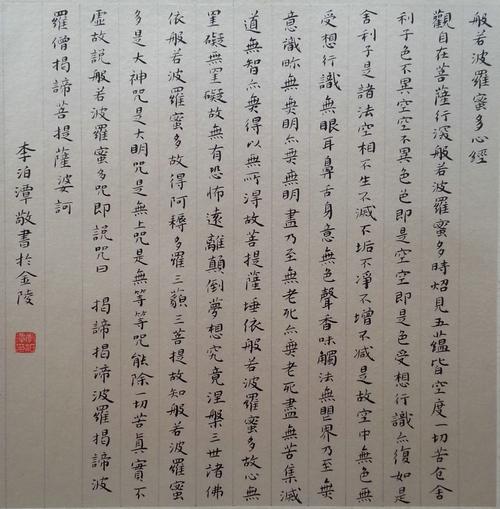 般若波羅蜜多心經
觀自在菩薩行深般若波羅蜜多時炤見五蘊皆空度一切苦厄舍
利子色不異空空不異色色即是空空即是色受想行識亦復如是
舍利子是諸法空相不生不滅不垢不凈不增不減是故空中無色無
受想行識無眼耳鼻舌身意無色聲香味觸法無眼界乃至無
意識界無無明亦無無明盡乃至無老死亦無老死盡無苦集滅
道無智亦無得以無所得故菩提薩埵依般若波羅蜜多故心無
罣礙無罣礙故無有恐怖遠離顛倒夢想究竟涅槃三世諸佛
依般若波羅蜜多故得阿耨多羅三藐三菩提故知般若波羅蜜
多是大神咒是大明咒是無上咒是無等等咒能除一切苦真實不
虛故說般若波羅蜜多咒即說咒曰 揭諦揭諦波羅揭諦波
羅僧揭諦菩提薩婆訶
李泊潭敬書於金陵